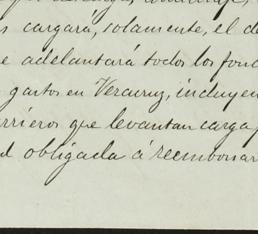 cargará, solamente, el de
e adelantará todos los fond
gastos en Veracruz, incluyen
rrieros que levantan carga
d obligada á reembonar